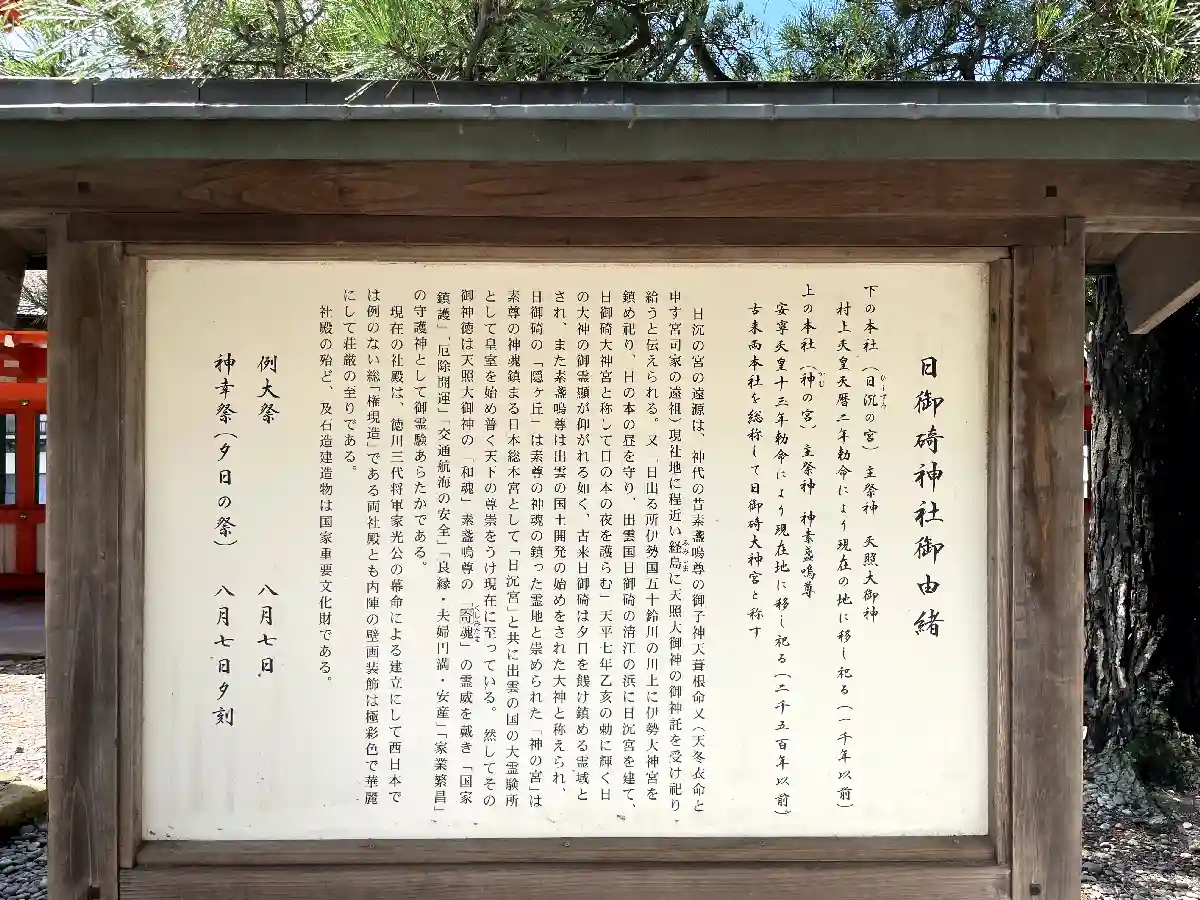 日御碕神社御由緒
下の本社(日沉の宮) 主祭神 天照大御神
ひしずみ
村上天皇天暦二年勅命により現在の地に移し祀る(一千年以前)
上の本社(神の宮) 主祭神 神素盞嗚尊
かむ
安寧天皇十三年勅命により現在地に移し祀る(二千五百年以前)
古来両本社を総称して日御碕大神宮と称す
日沉の宮の遠源は、神代の昔素盞嗚尊の御子神天葺根命又(天冬衣命と
申す宮司家の遠祖)現社地に程近い経島に天照大御神の御神託を受け祀り
ふみしま
給うと伝えられる。又「日出る所伊勢国五十鈴川の川上に伊勢大神宮を
鎮め祀り、日の本の昼を守り、出雲国日御碕の清江の浜に日沉宮を建て、
日御碕大神宮と称して日の本の夜を護らむ」天平七年乙亥の勅に輝く日
の大神の御霊顕が仰がれる如く、古来日御碕は夕日を餞け鎮める霊域と
され、また素盞嗚尊は出雲の国土開発の始めをされた大神と称えられ、
日御碕の「隠ヶ丘」は素尊の神魂の鎮った霊地と崇められた「神の宮」は
素尊の神魂鎮まる日本総本宮として「日沉宮」と共に出雲の国の大霊験所
として皇室を始め普く天下の尊崇をうけ現在に至っている。然してその
御神徳は天照大御神の「和魂」素盞嗚尊の「奇魂」の霊威を戴き「国家
くしみたま
鎮護」、厄除開運」「交通航海の安全」「良縁・夫婦円満・安産」「家業繁昌」
の守護神として御霊験あらたかである。
現在の社殿は、徳川三代将軍家光公の幕命による建立にして西日本で
は例のない総「権現造」である両社殿とも内陣の壁画装飾は極彩色で華麗
にして荘厳の至りである。
社殿の殆ど、及石造建造物は国家重要文化財である。
例大祭 八月七日
神幸祭(夕日の祭) 八月七日夕刻